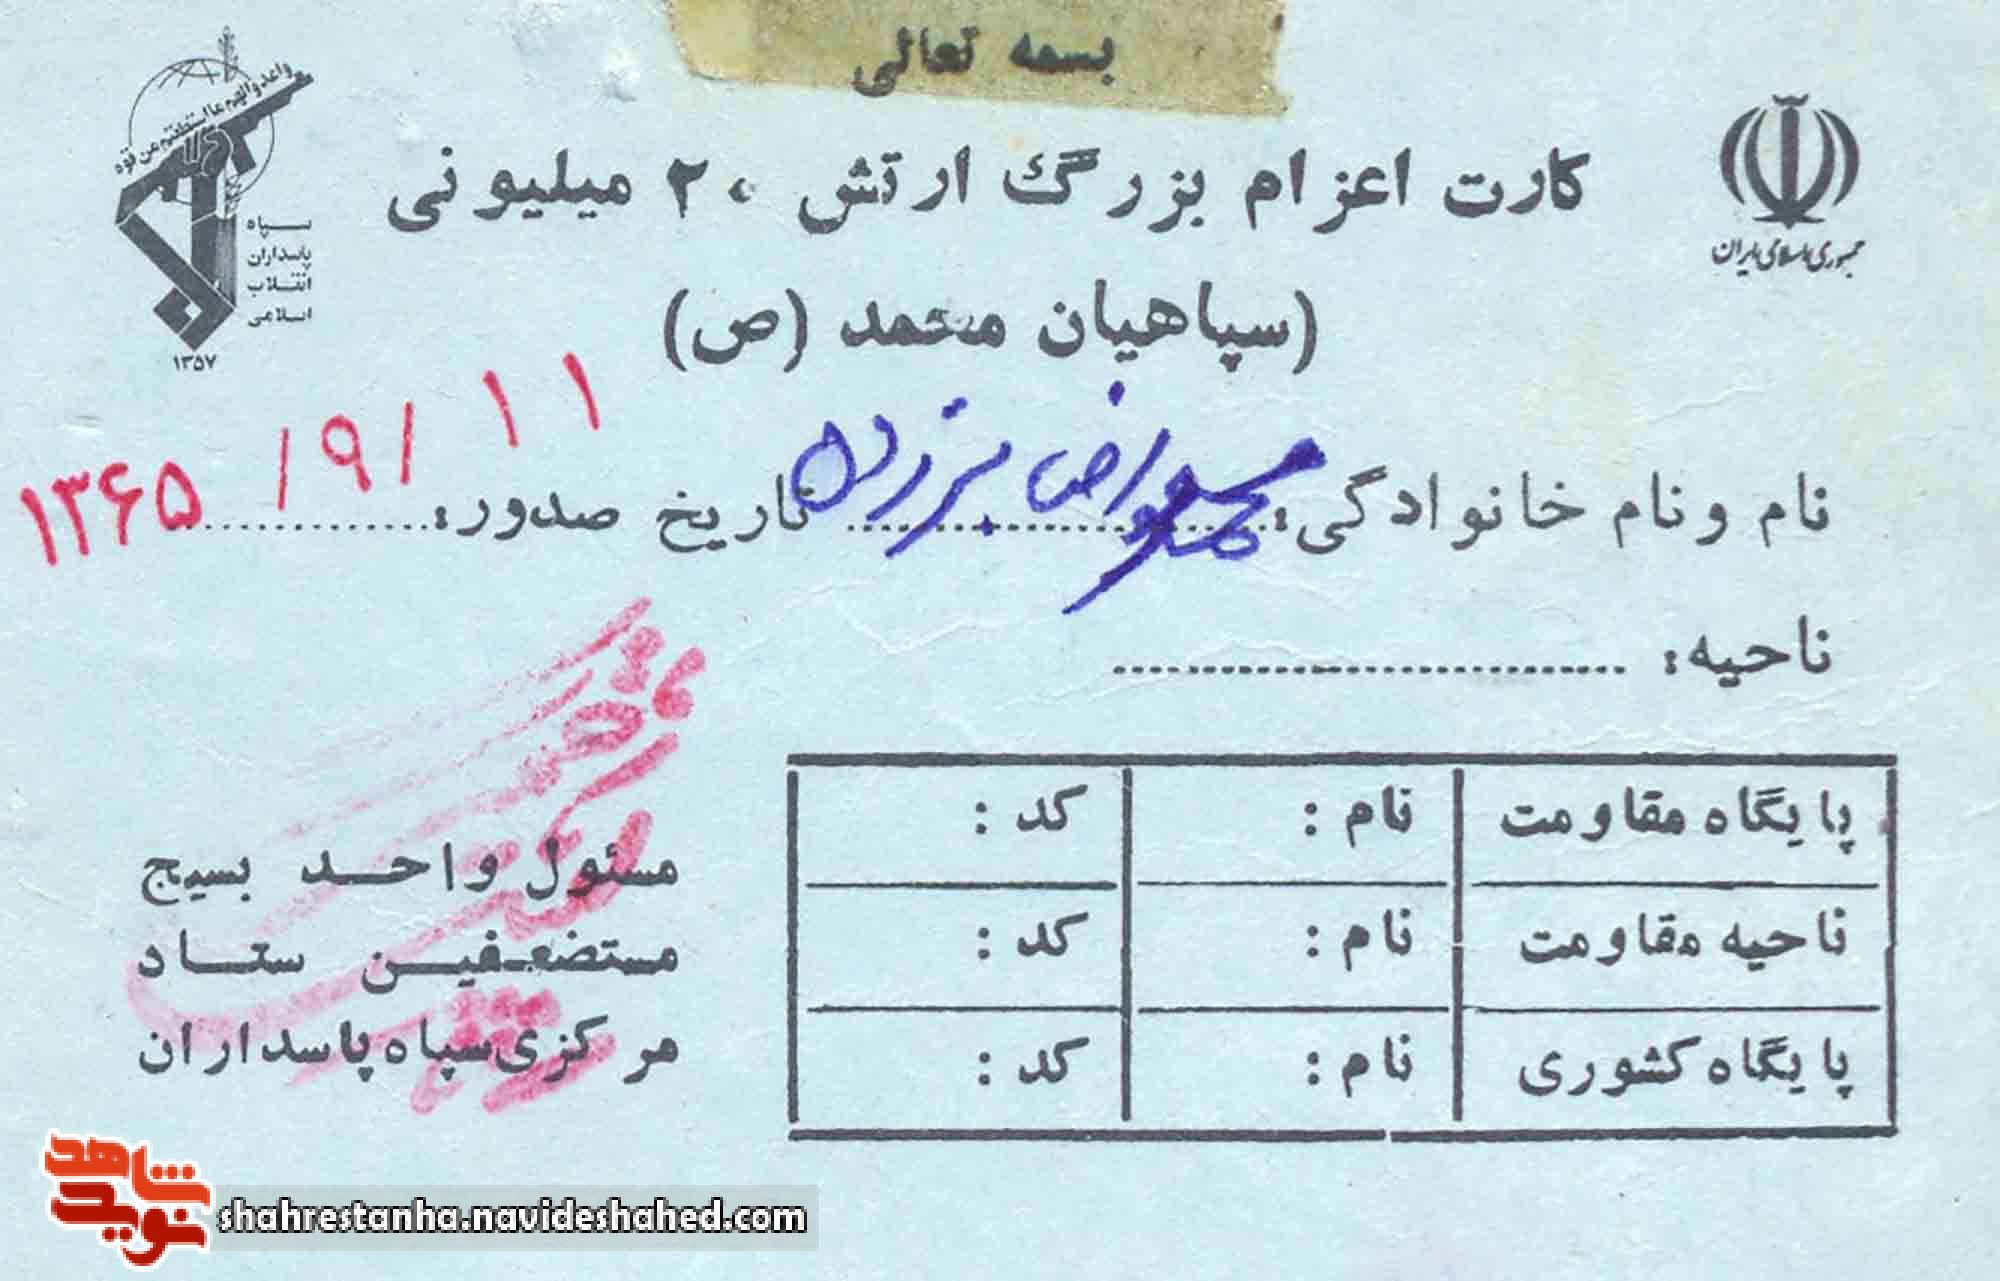 بسمه تعالی
کارت اعزام بزرگ ارتش ۲۰ میلیونی
(سپاهیان محمد (ص)
جمهوری اسلامی ایران
واعدوا لهم ما استطعتم من قوة
سپاه
پاسداران
انقلاب
اسلامی
۱۳۵۷
نام و نام خانوادگی: محمدرضا تاریخ صدور: ۱۳۶۵/۹/۱۱
ناحیه:
پایگاه مقاومت نام : کد :
ناحیه مقاومت نام : کد :
پایگاه کشوری نام : کد :
مسئول واحد بسیج
مستضعفین ستاد
مرکزی سپاه پاسداران
نوید شاهد
shahrestanha.navideshahed.com